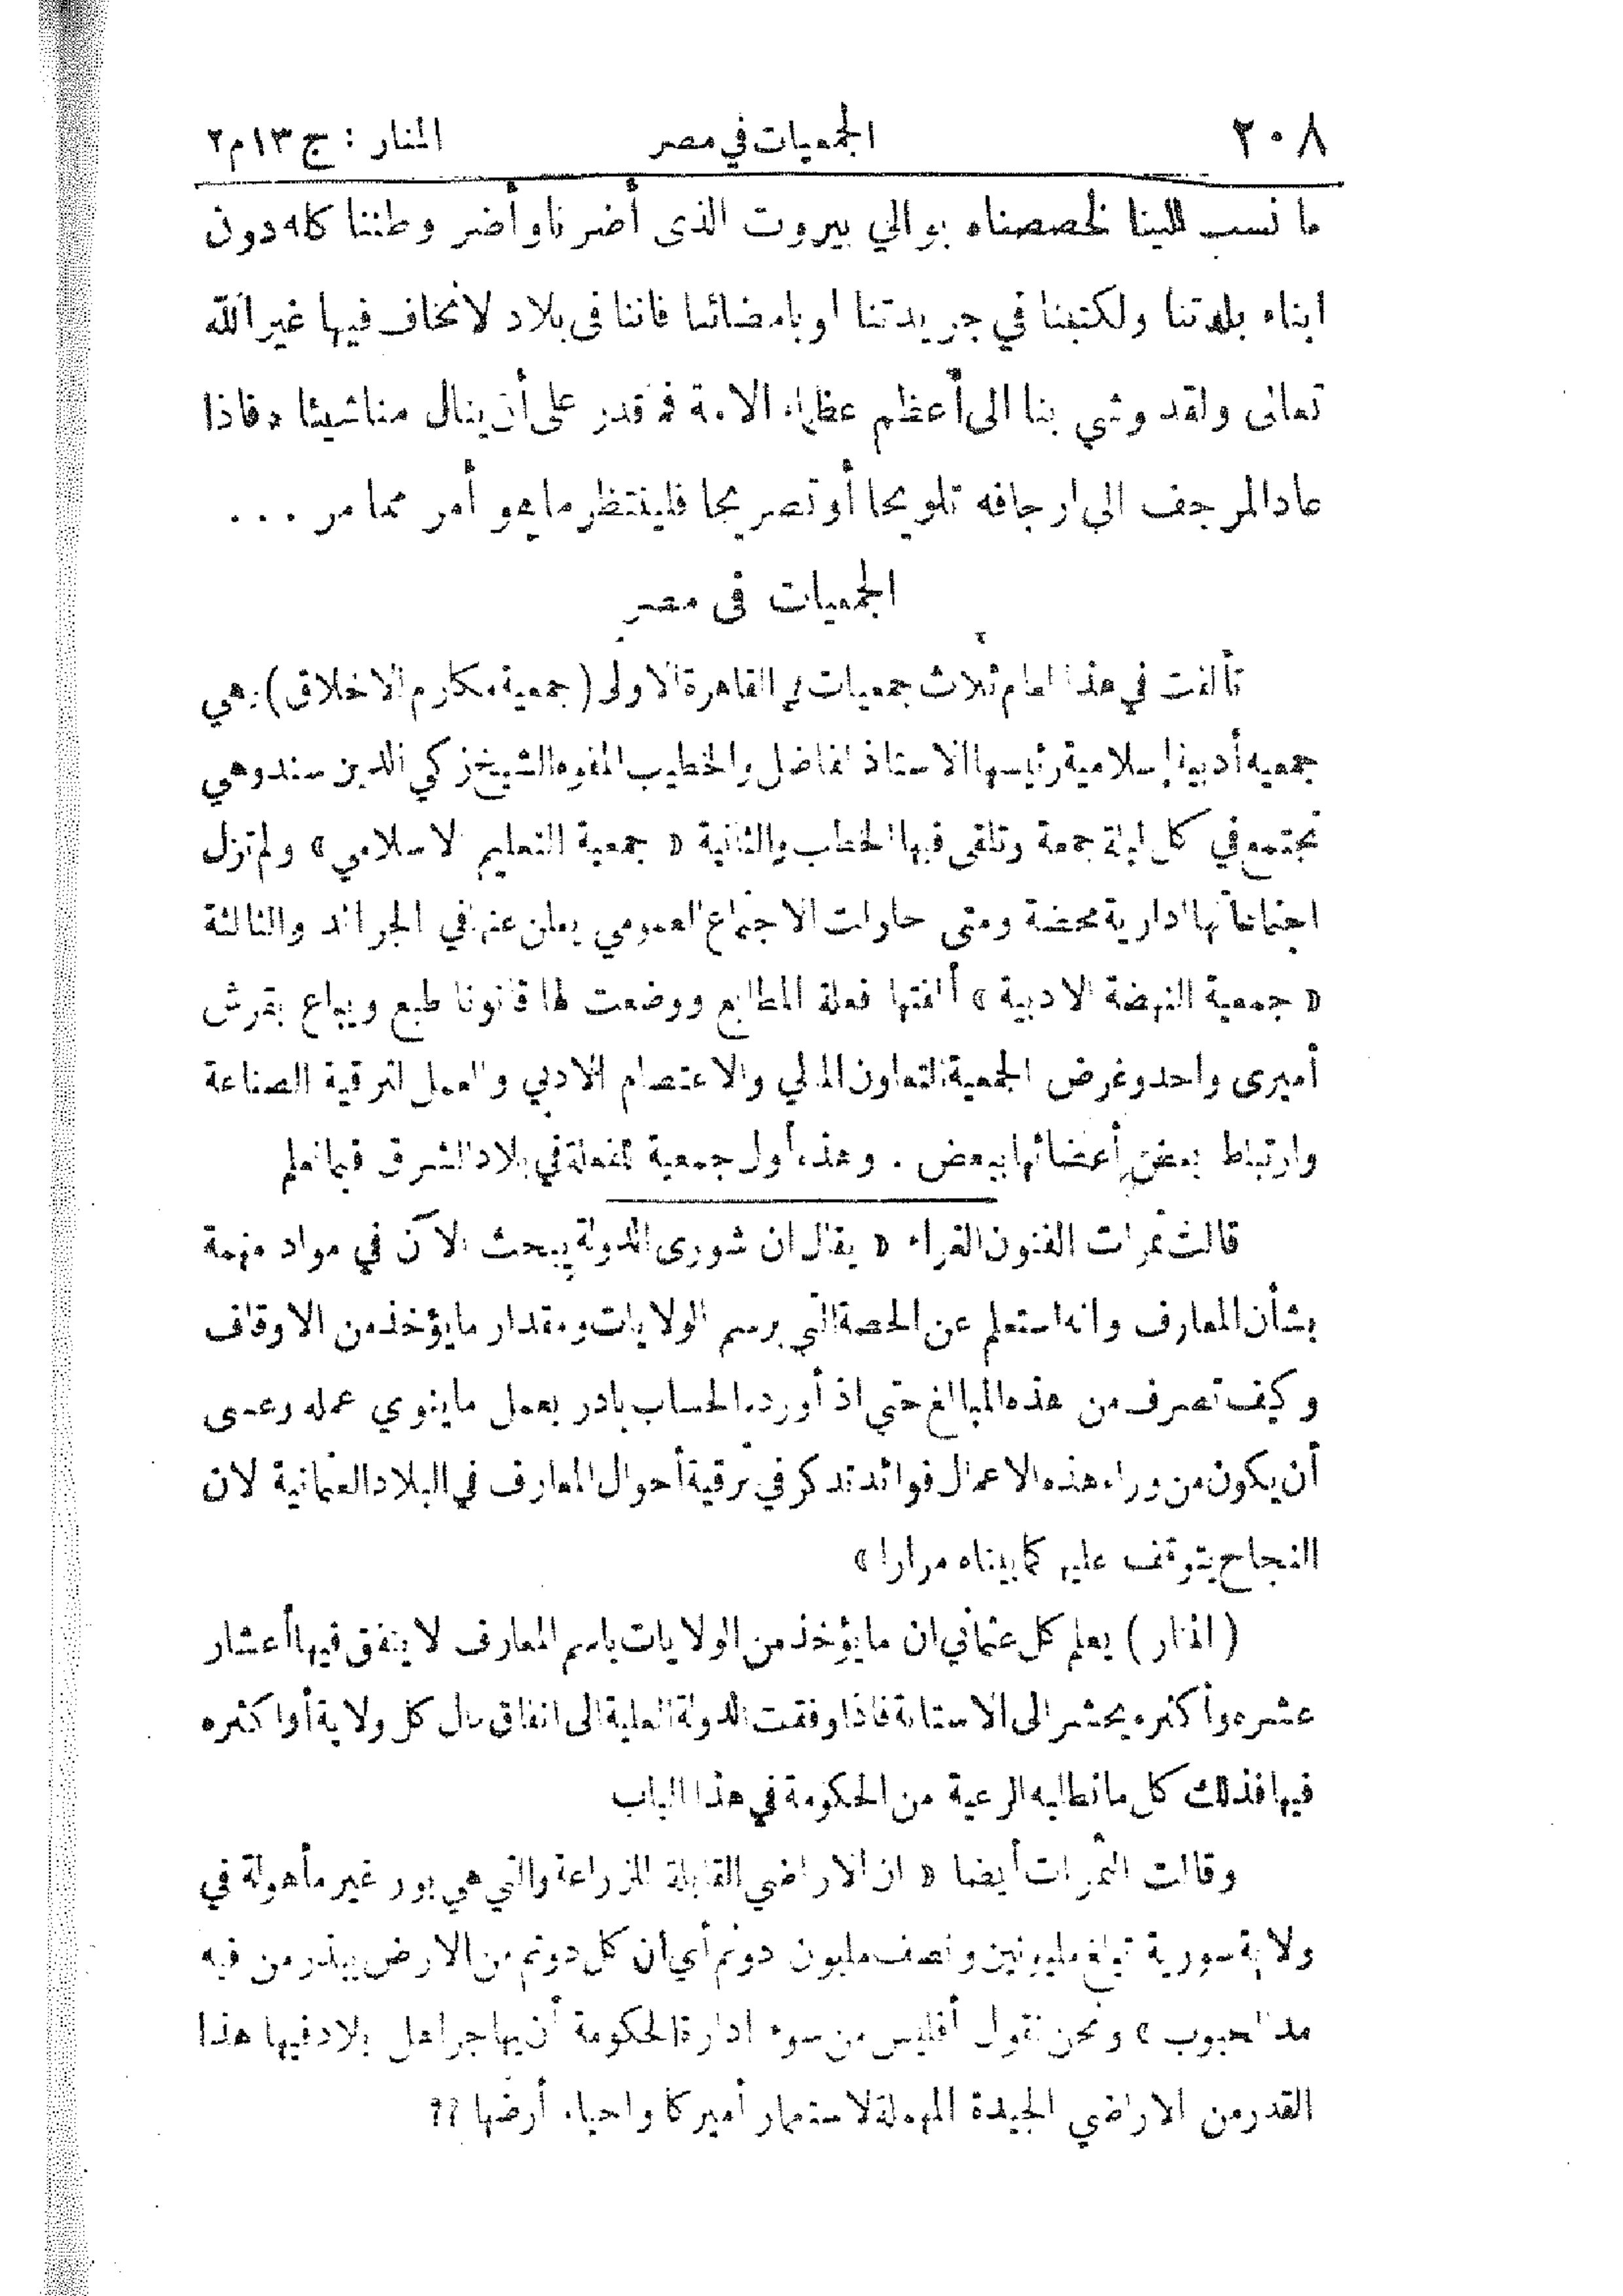 ٢٠٨ الجمعيات في مصر المنار : ج ١٣ م ٢
ما نسب الينا لخصصناه بوالي بيروت الذى أضر ناوأضر وطننا كله دون
ابناء بلدتنا ولكتبنا في جريدتنا او بامضائنا فاننا فى بلاد لا نخاف فيها غير الله
تعالى ولقد وشي بنا الى أعظم عظماء الامة فما قدر على أن ينال منا شيئا فاذا
عاد المرجف الى ارجافه تلويحا أو تصريحا فلينتظر ما هو أمر مما مر . . .
الجمعيات فى مصر
تألفت في هذا العام ثلاث جمعيات في القاهرة الاولى (جمعية مكارم الاخلاق) وهي
جمعيه أدبية إسلامية رئيسها الاستاذ الفاضل والخطيب المفوه الشيخ زكي الدين سند وهي
تجتمع في كل ليلة جمعة وتلقى فيها الخطب والثانية « جمعية التعليم الاسلامي » ولم تزل
اجتماعاتها ادارية محضة ومتى حاولت الاجتماع العمومي يعلن عنه في الجرائد والثالثة
« جمعية النهضة الادبية » ألفتها فعلة المطابع ووضعت لها قانونا طبع ويباع بقرش
أميرى واحد وغرض الجمعية التعاون المالي والاعتصام الادبي والعمل لترقية الصناعة
وارتباط بعض أعضائها ببعض . وهذه أول جمعية للفعلة في بلاد الشرق فيما نعلم
قالت ثمرات الفنون الغراء « يقال ان شورى الدولة يبحث الآن في مواد مهمة
بشأن المعارف وانه استعلم عن الحصة التي برسم الولايات ومقدار ما يؤخذ من الاوقاف
وكيف تصرف من هذه المبالغ حتى اذا ورده الحساب بادر بعمل ما ينوي عمله وعسى
أن يكون من وراء هذه الاعمال فوائد تذكر في ترقية أحوال المعارف في البلاد العثمانية لان
النجاح يتوقف عليه كما بيناه مرارا »
( المنار ) يعلم كل عثماني ان ما يؤخذ من الولايات باسم المعارف لا ينفق فيها أعشار
عشره وأكثره يحشر الى الاستانة فاذا وفقت الدولة العلية الى انفاق مال كل ولاية أو اكثره
فيها فذلك كل ما تطلبه الرعية من الحكومة في هذا الباب
وقالت الثمرات أيضا « ان الاراضي القابلة للزراعة والتي هي بور غير مأهولة في
ولاية سورية تبلغ مليونين ونصف مليون دونم أي ان كل دونم من الارض يبذر من فيه
مد الحبوب » ونحن نقول أفليس من سوء ادارة الحكومة أن يهاجر اهل بلاد فيها هذا
القدر من الاراضي الجيدة المهملة لاستعمار أميركا واحياء أرضها ??